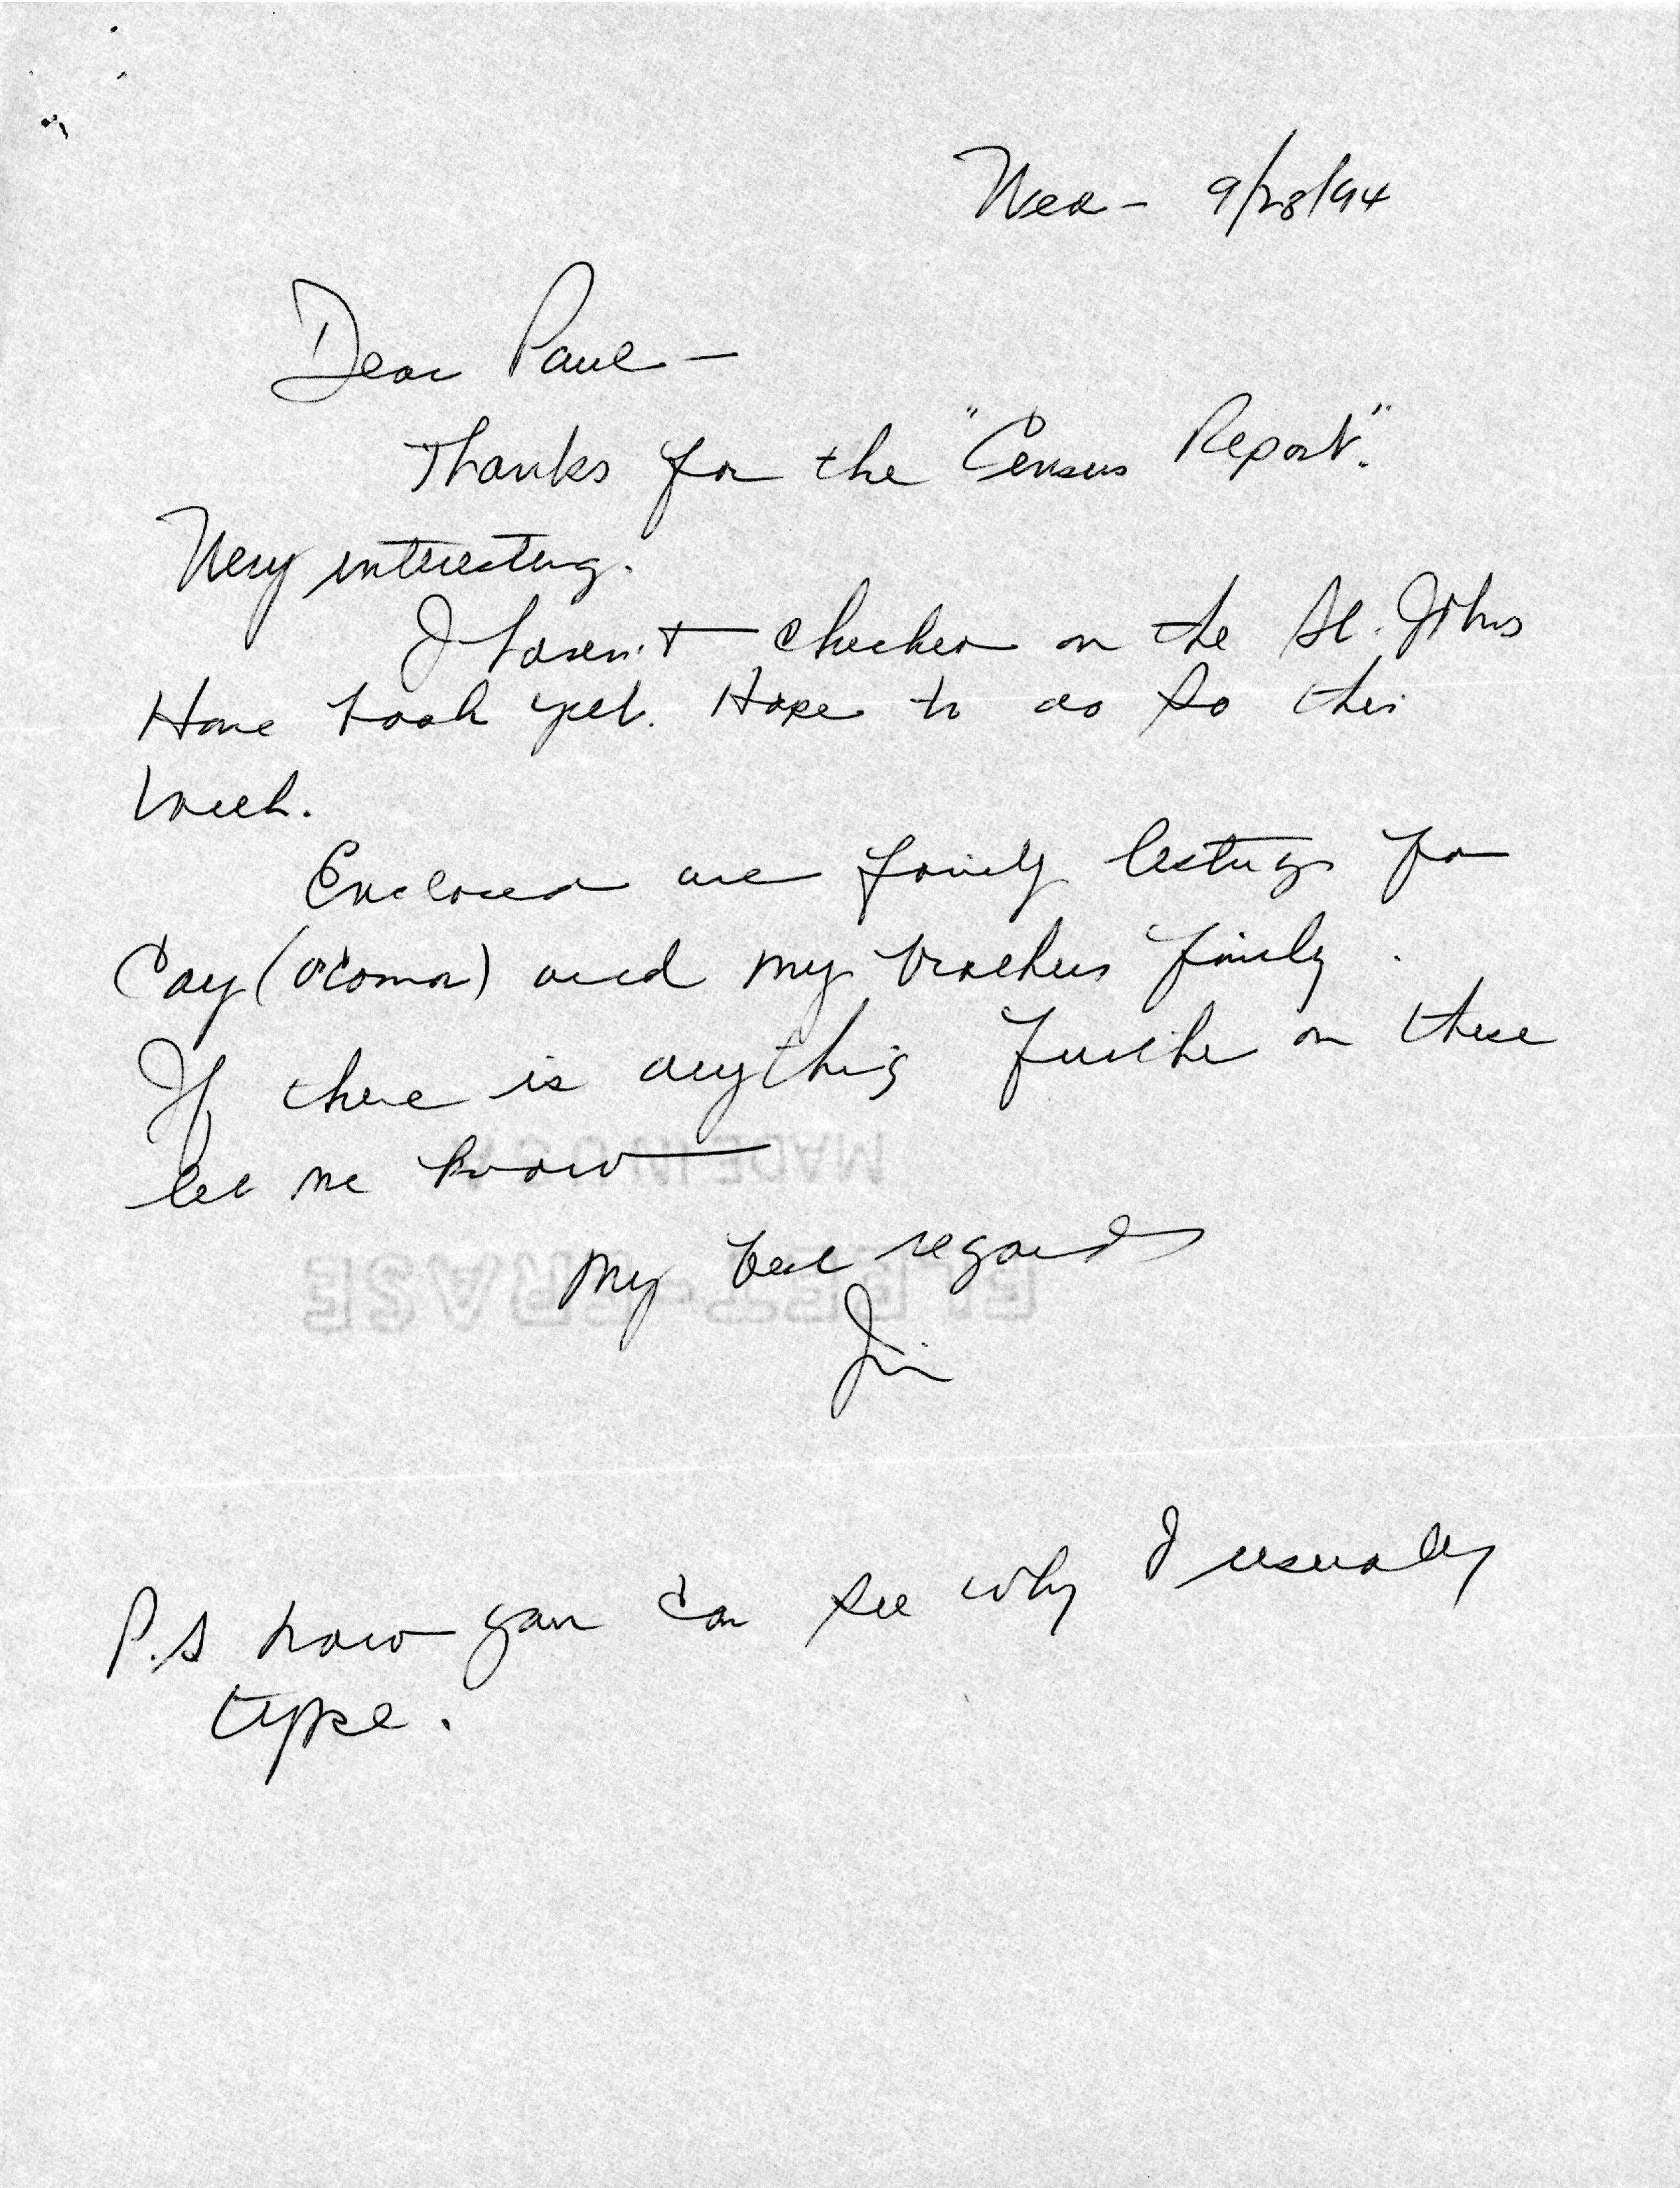 Wed - 9/28/94
Dear Paul -
Thanks for the "Census Report".
Very interesting.
I haven't checked on the St. Johns
Home book yet. Hope to do so this
week.
Enclosed are family listings for
Cay (O'Connor) and my brothers family.
If there is anything further on these
let me know
MADE IN U.S.A.
My best regards
EEZE-ERASE
Jim
P.S now you can see why I usually
type.